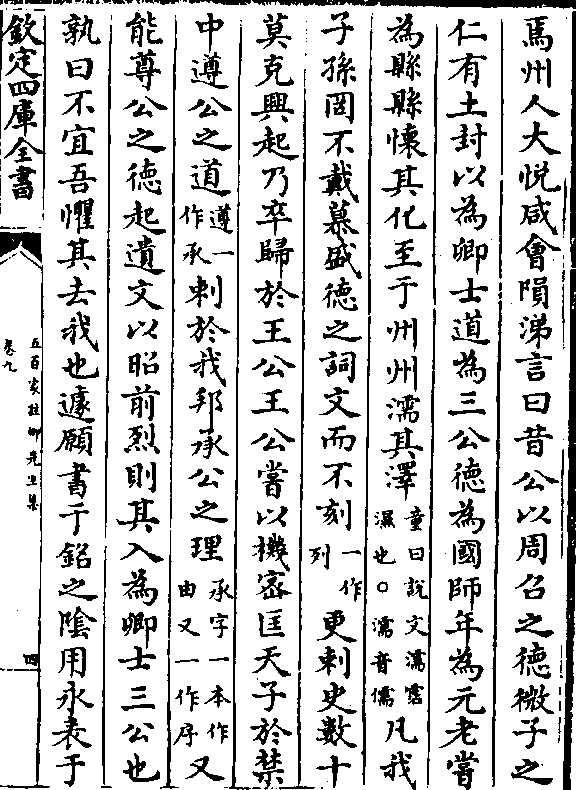 焉州人大悅咸會隕涕言曰昔公以周召之德微子之
仁有土封以為卿士道為三公德為國師年為元老嘗
為縣縣懷其化至于州州濡其澤童曰說文濡霑濕也○濡音儒凡我
子孫罔不戴慕盛德之詞文而不刻一作列更刺史數十
莫克興起乃卒歸於王公王公嘗以機密匡天子於禁
中遵公之道遵一作承刺於我邦承公之理承字一本作由又一作序又
能尊公之德起遺文以昭前烈則其入為卿士三公也
孰曰不宜吾懼其去我也遽願書于銘之陰用永表于
欽定四庫全書
五百家註柳先生集
卷九
四